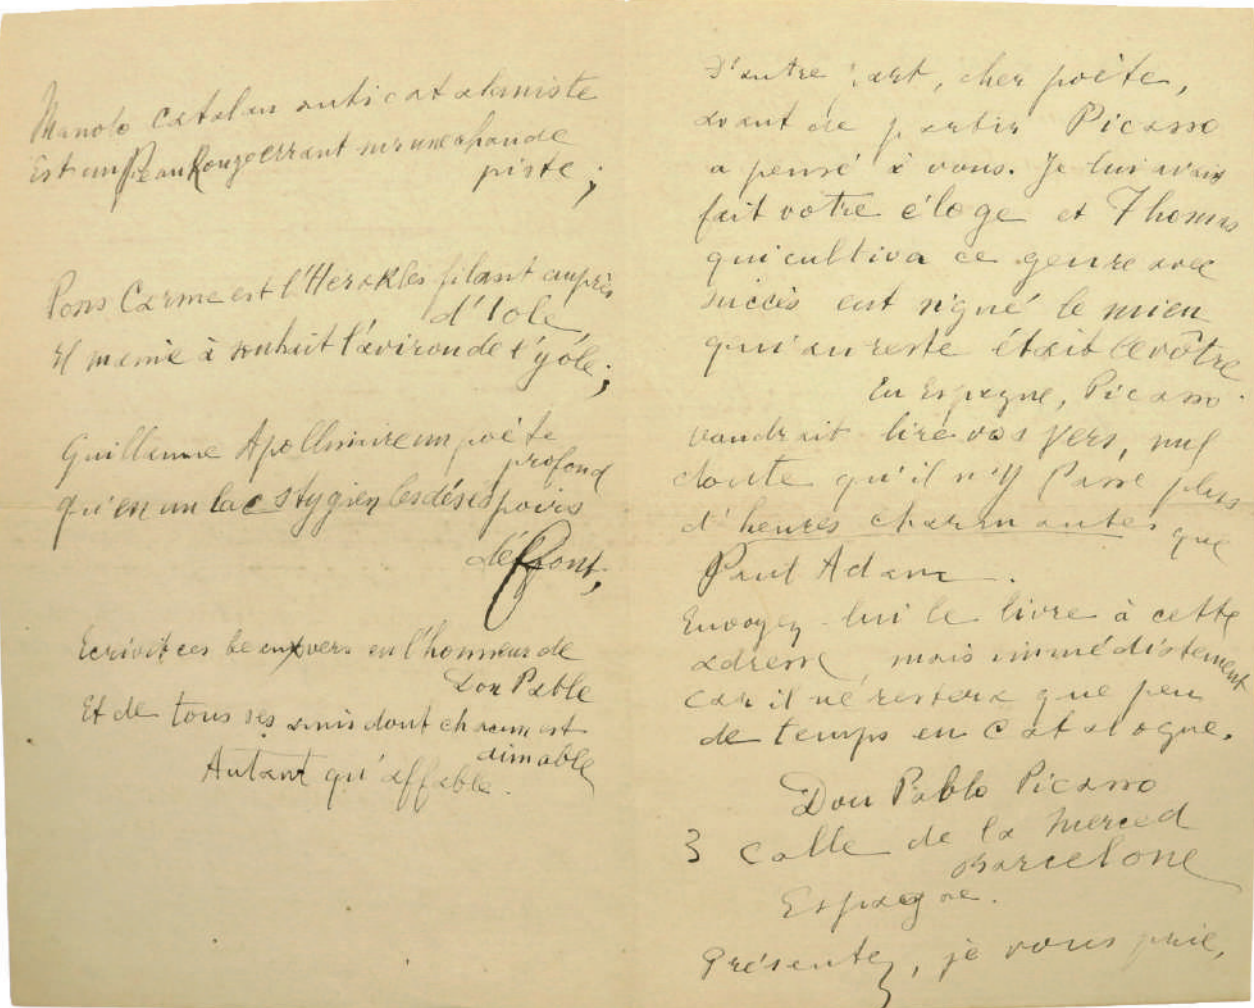 Manolo Catalan anticatalaniste
Est un Peau Rouge errant sur une chaude
piste ;
Pons Carme est l'Herakles filant auprès
d'Iole
Il manie à souhait l'aviron de l'yole ;
Guillaume Apollinaire un poète
profond
qu'en un lac stygien les désespoirs
défont,
Ecrivit ces beaux vers en l'honneur de
Don Pable
Et de tous ses amis dont chacun est
aimable
Autant qu'affable.
D'autre part, cher poète,
avant de partir Picasso
a pensé à vous. Je lui avais
fait votre éloge et Thomas
qui cultiva ce genre avec
succès eut signé le mien
qui au reste était le vôtre
En Espagne, Picasso
voudrait lire vos vers, nul
doute qu'il n'y passe plus
d'heures charmantes que
Paul Adam.
Envoyez-lui le livre à cette
adresse mais immédiatement
car il ne restera que peu
de temps en Catalogne.
Don Pablo Picasso
3 Calle de la Merced
Barcelone
Espagne.
Présentez, je vous prie,